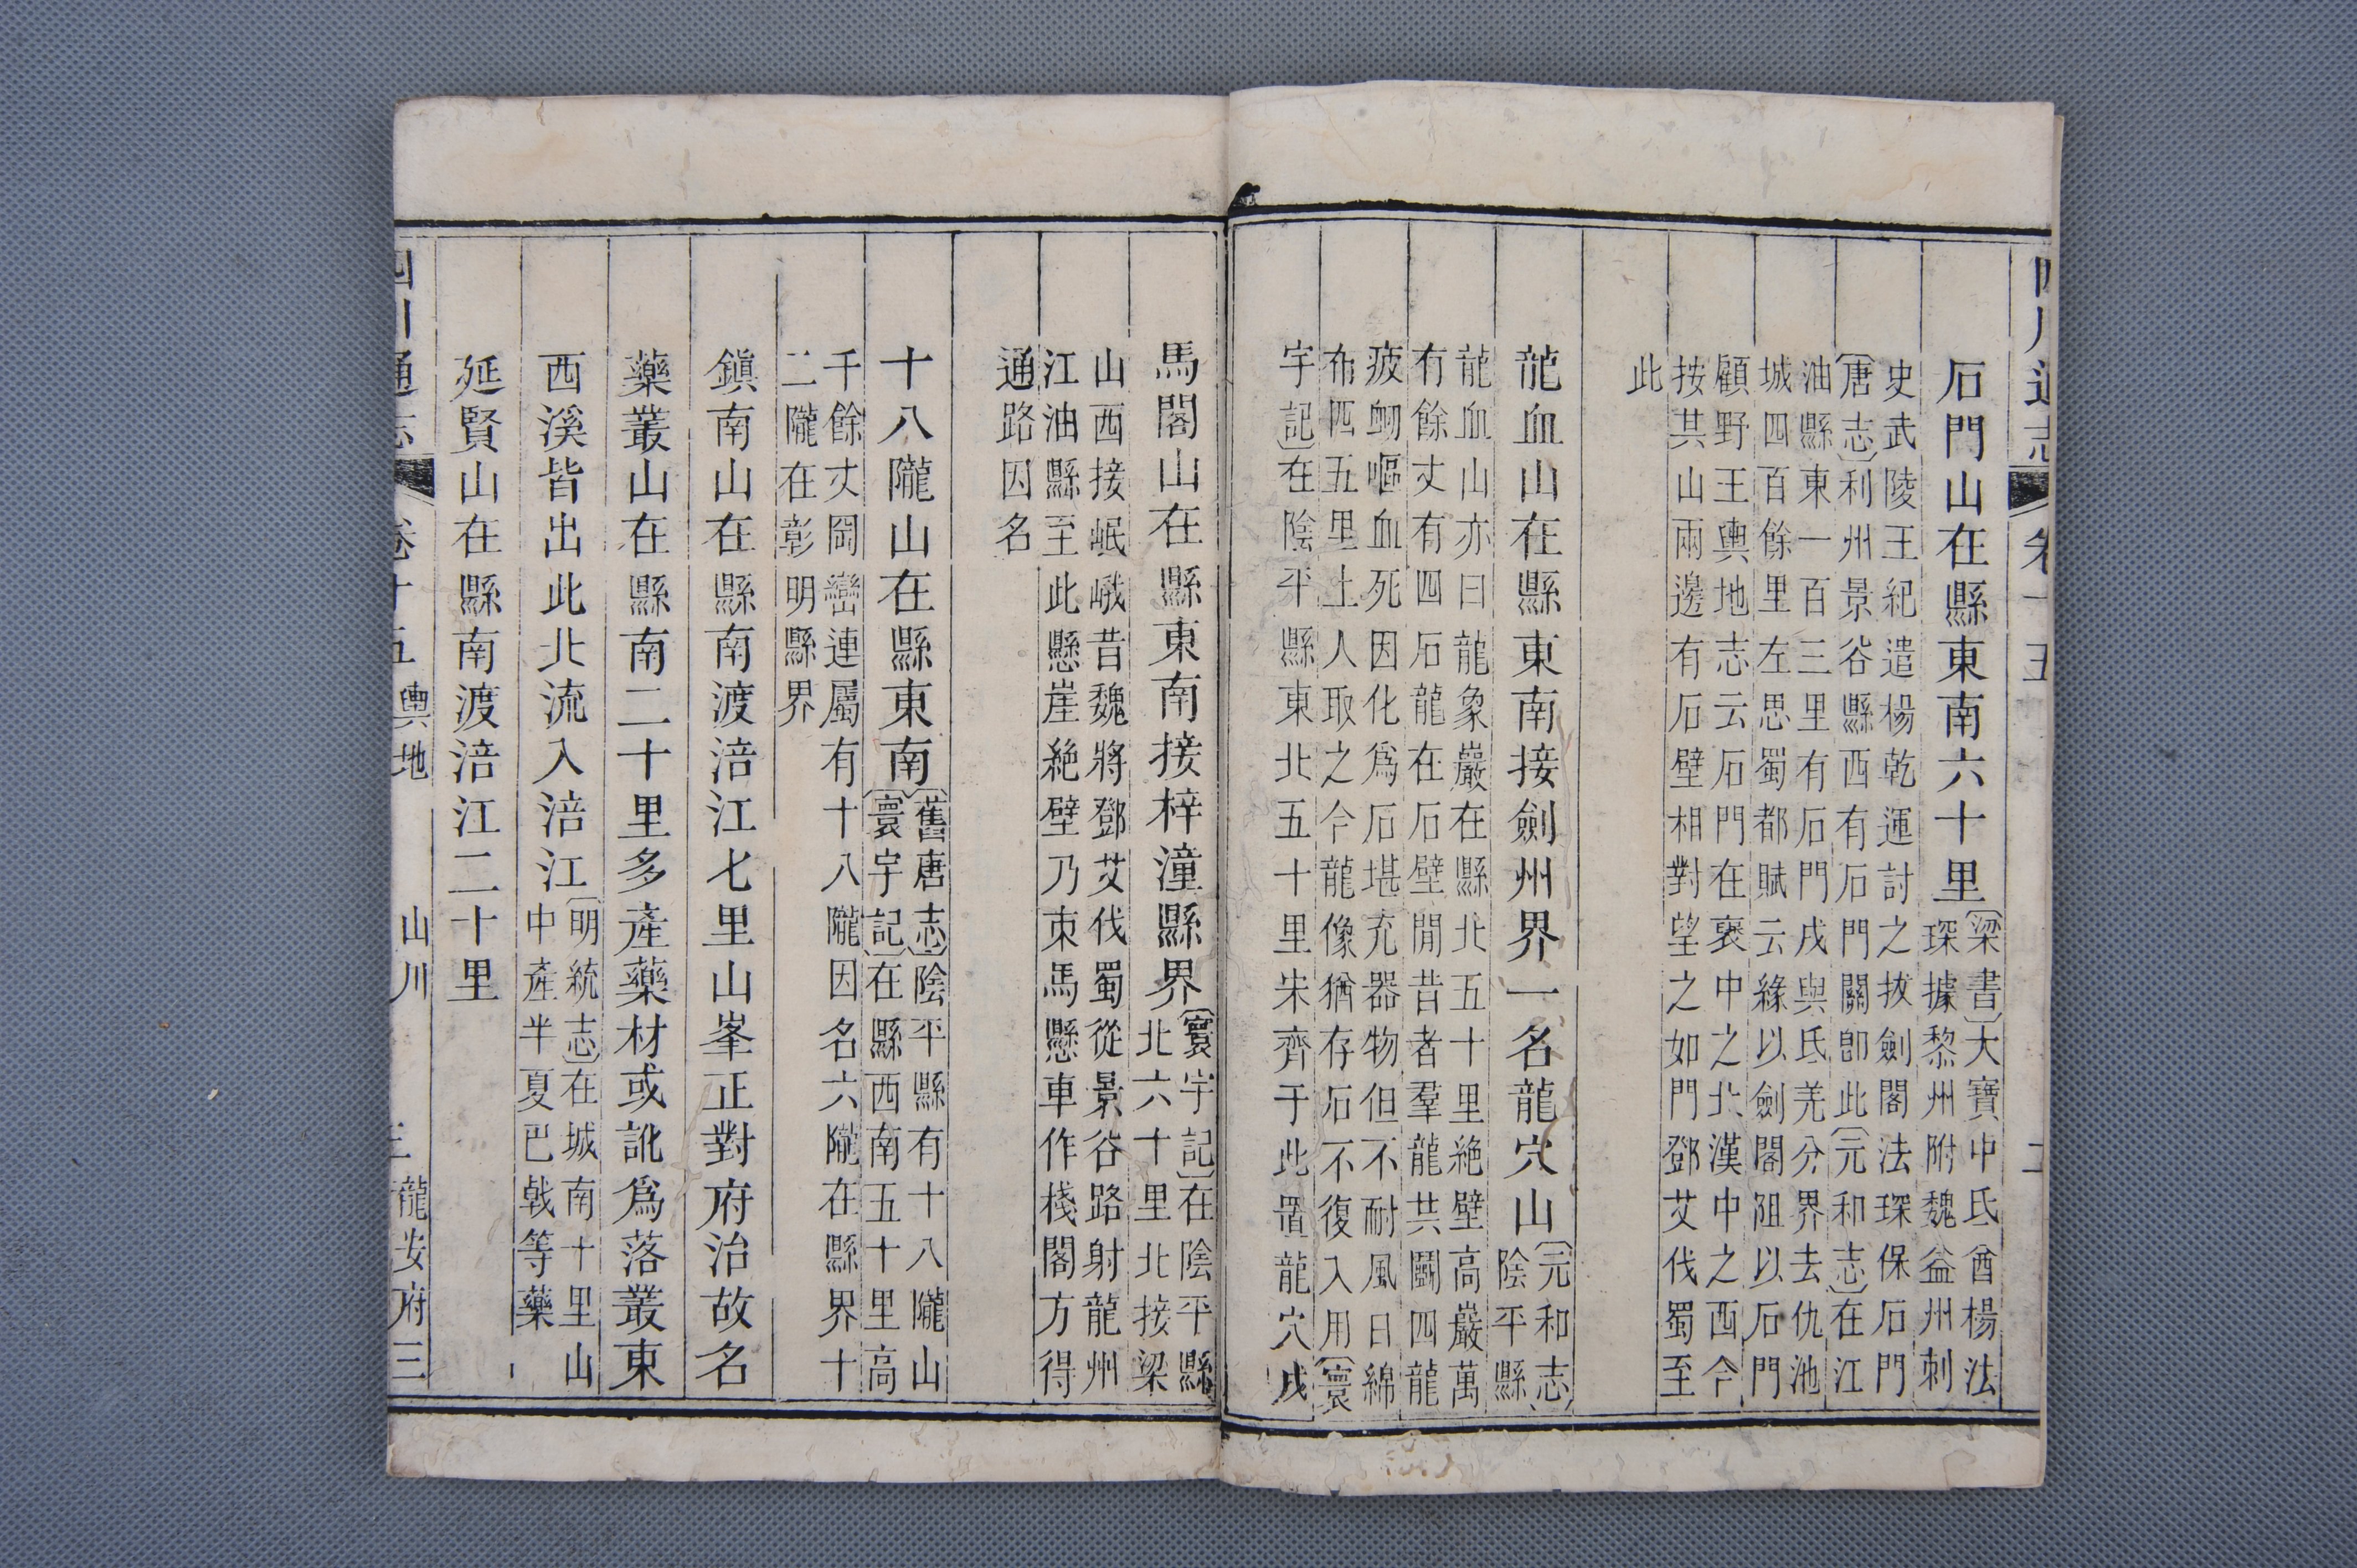 四川通志 卷十五
石門山在縣東南六十里〔梁書〕大寶中氐酋楊法
琛據黎州附魏益州刺
史武陵王紀遣楊乾運討之拔劍閣法琛保石門
〔唐志〕利州景谷縣西有石門關卽此〔元和志〕在江
油縣東一百三里有石門戍與氐羌分界去仇池
城四百餘里左思蜀都賦云緣以劍閣阻以石門
顧野王輿地志云石門在襃中之北漢中之西今
按其山兩邊有石壁相對望之如門鄧艾伐蜀至
此
龍血山在縣東南接劍州界一名龍穴山〔元和志〕
陰平縣
龍血山亦曰龍象巖在縣北五十里絶壁高巖萬
有餘丈有四石龍在石壁閒昔者羣龍共鬭四龍
疲衂嘔血死因化爲石堪充器物但不耐風日綿
布匹五里土人取之今龍像猶存石不復入用〔寰
宇記〕在陰平縣東北五十里宋齊于此置龍穴戍
馬閣山在縣東南接梓潼縣界〔寰宇記〕在陰平縣
北六十里北接梁
山西接岷峨昔魏將鄧艾伐蜀從景谷路射龍州
江油縣至此懸崖絶壁乃束馬懸車作棧閣方得
通路因名
十八隴山在縣東南〔舊唐志〕陰平縣有十八隴山
〔寰宇記〕在縣西南五十里高
千餘丈岡巒連屬有十八隴因名六隴在縣界十
二隴在彰明縣界
鎭南山在縣南渡涪江七里山峯正對府治故名
藥叢山在縣南二十里多產藥材或訛爲落叢東
西溪皆出此北流入涪江〔明統志〕在城南十里山
中產半夏巴戟等藥
延賢山在縣南渡涪江二十里
四川通志 卷十五 輿地 山川 三 龍安府三